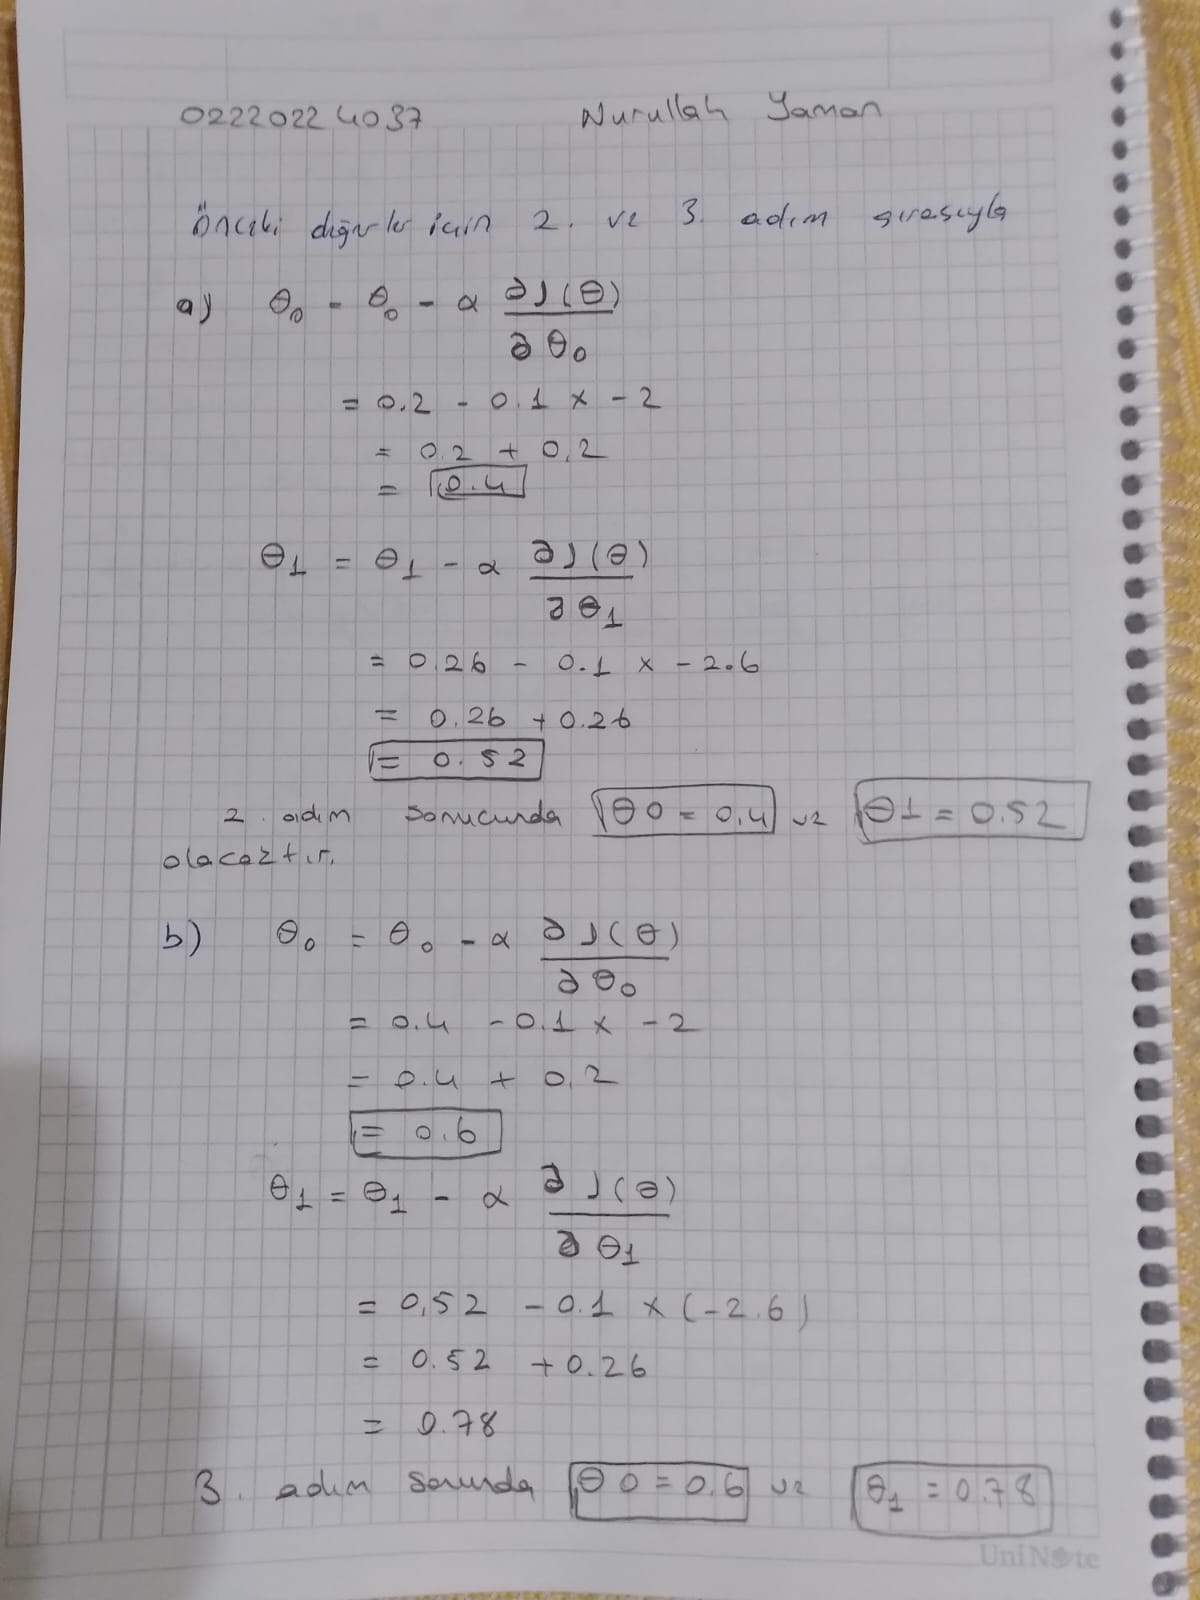 02220224037 Nurullah Yaman
Önceki değerler için 2. ve 3. adım sırasıyla
a) θ₀ = θ₀ - α ∂J(θ)
∂θ₀
= 0.2 - 0.1 x -2
= 0.2 + 0.2
= 0.4
θ1 = θ1 - α ∂J(θ)
∂θ1
= 0.26 - 0.1 x -2.6
= 0.26 + 0.26
= 0.52
2. adım sonucunda θ0 = 0.4 ve θ1 = 0.52
olacaktır.
b) θ₀ = θ₀ - α ∂J(θ)
∂θ₀
= 0.4 - 0.1 x -2
= 0.4 + 0.2
= 0.6
θ1 = θ1 - α ∂J(θ)
∂θ1
= 0,52 - 0.1 x (-2.6)
= 0.52 + 0.26
= 0.78
3. adım sonunda θ0 = 0.6 ve θ1 = 0.78
UniNote